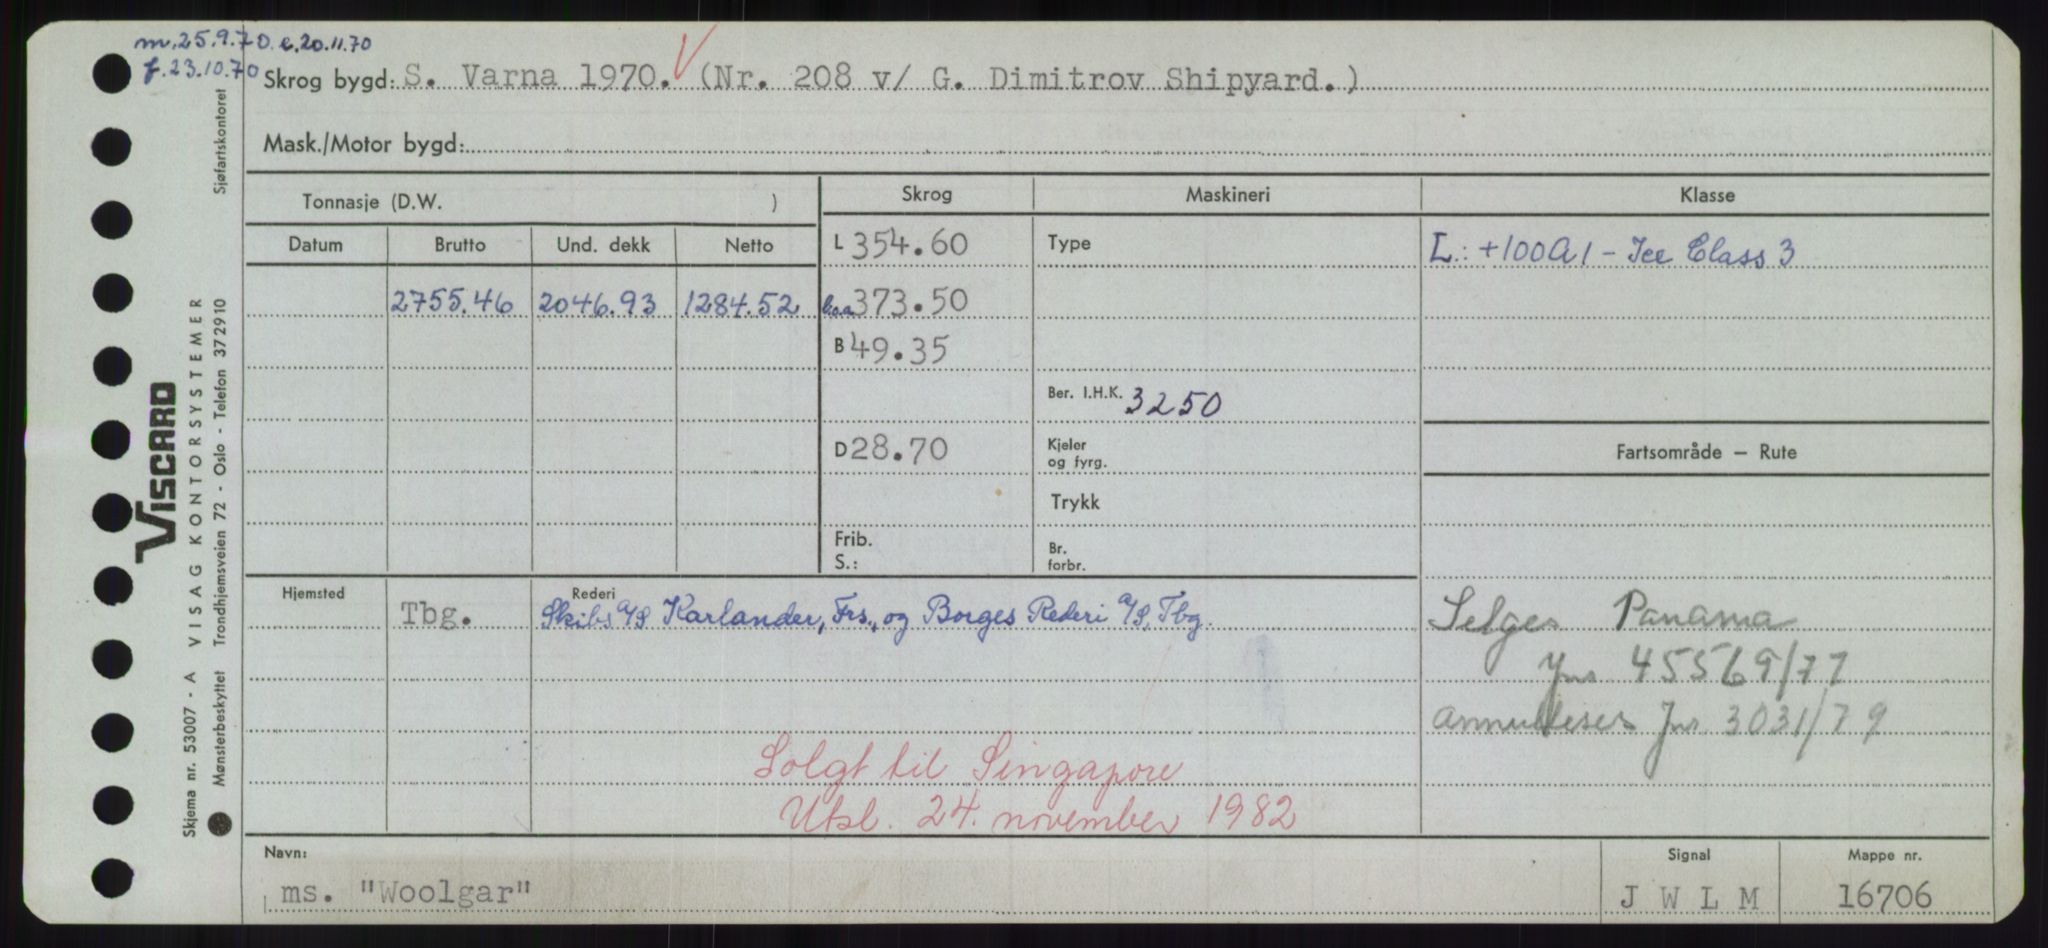 m. 25.9.70. e. 20.11.70
f. 23.10.70
Skrog bygd: S. Varna 1970. V (Nr. 208 v/ G. Dimitrov Shipyard.)
Mask./Motor bygd:
Tonnasje (D.W. )
Skrog
Maskineri
Klasse
Datum
Brutto
Und. dekk
Netto
L 354.60
Type
L.: +100A1 - Ice Class 3
2755.46
2046.93
1284.52
l.o.a. 373.50
B 49.35
Ber. I.H.K. 3250
D 28.70
Kjeler
og fyrg.
Fartsområde — Rute
Trykk
Frib.
S.:
Br.
forbr.
Hjemsted
Tbg.
Rederi
Skibs A/S Karlander, Frs., og Borges Rederi A/S, Tbg.
Selges Panama
Jnr 45569/77
Annulleres Jnr. 3031/79
Solgt til Singapore
Utsl. 24. november 1982
Navn:
ms. "Woolgar"
Signal
J W L M
Mappe nr.
16706
Skjema nr. 53007 - A VISAG KONTORSYSTEMER
Mønsterbeskyttet Trondhjemsveien 72 - Oslo - Telefon 372910 Sjøfartskontoret
VISCARD